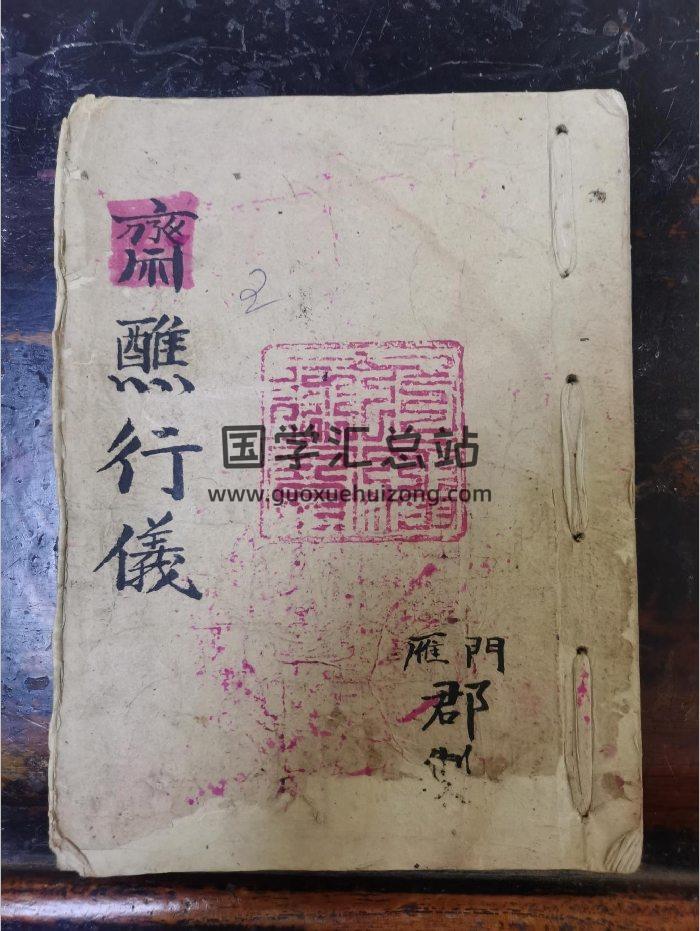 齋醮行儀
国学汇总站
www.guoxuehuizong.com
雁門
郡